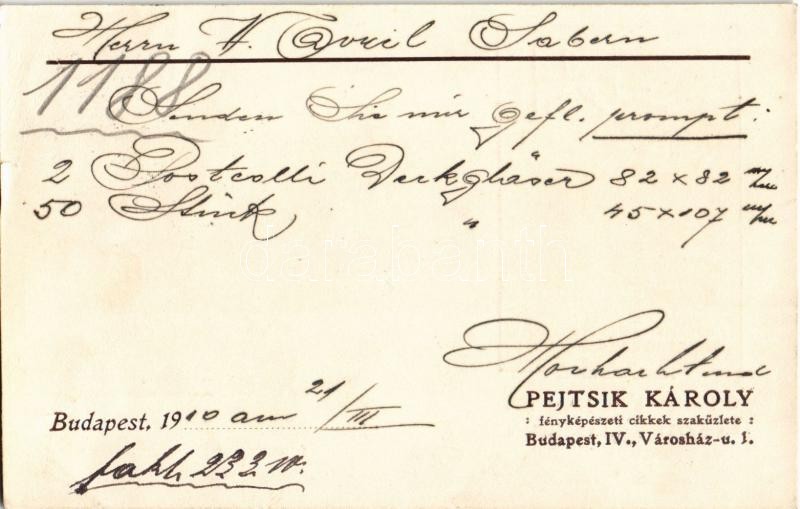 Herrn H. Avril Sabern
1188
Senden Sie mir gefl. prompt:
2 Postcolli Deckgläser 82 x 82 m/m
50 Stück " 45 x 107 m/m
Hochachtend
Budapest, 1910 am 21/III
PEJTSIK KÁROLY
: fényképészeti cikkek szaküzlete :
Budapest, IV., Városház-u. 1.
fakt. 23 3 10.
darabanth